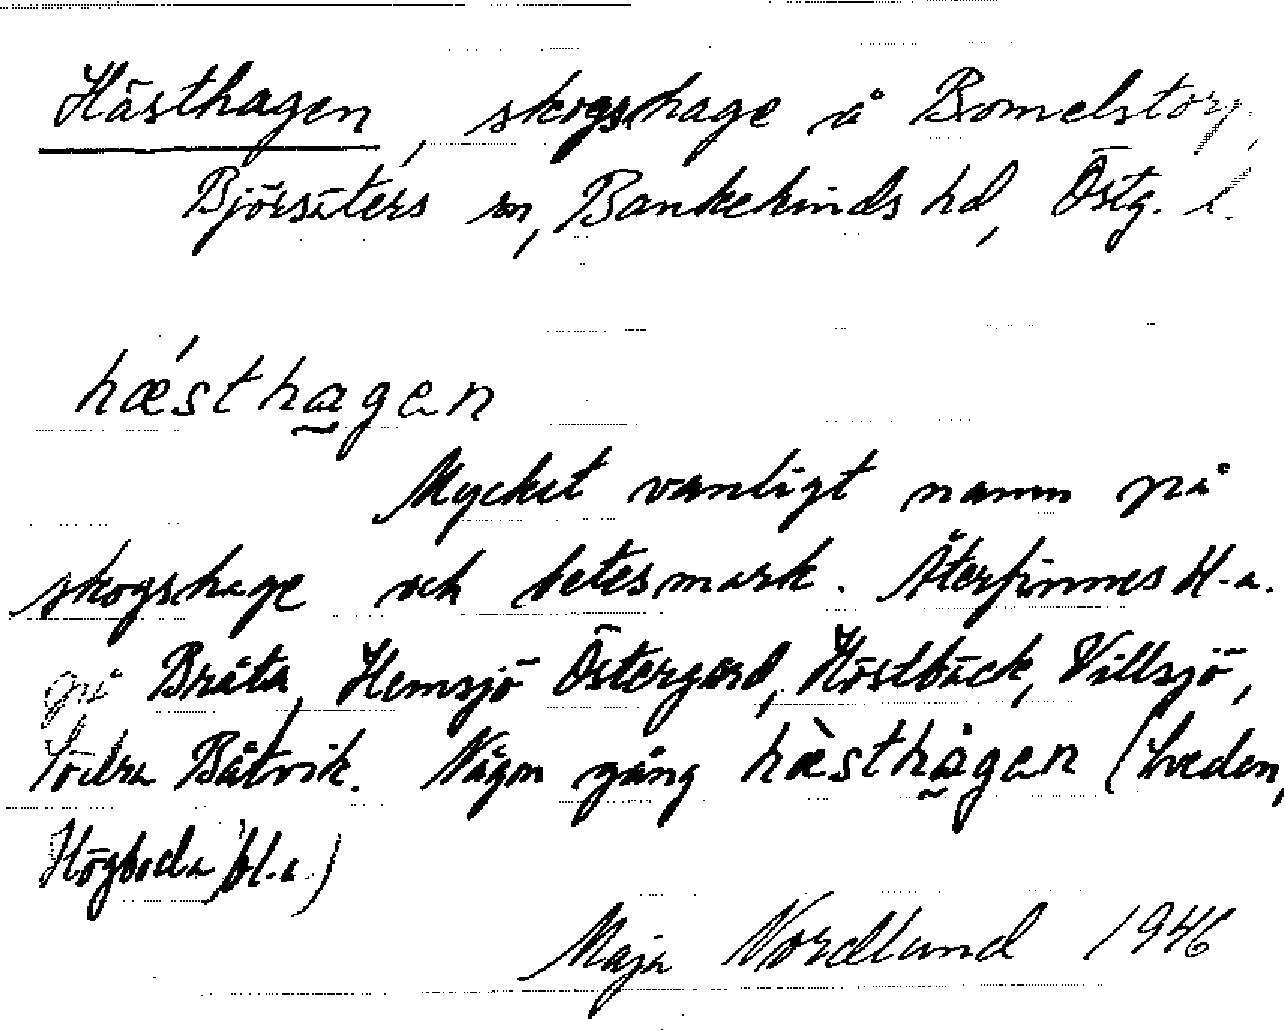 Hästhagen, skogshage å Bomelstorp,
Björsäters sn, Bankekinds hd, Östg. l.
hæ´sthagen
Mycket vanligt namn på
skogshage och betesmark. Återfinnes bl.a.
på Bråta, Hemsjö Östergård, Höstbäck, Villsjö,
Södra Båtvik. Någon gång hæ`sthàgen (Sveden,
Högboda bl.a.)
Maja Nordlund 1946